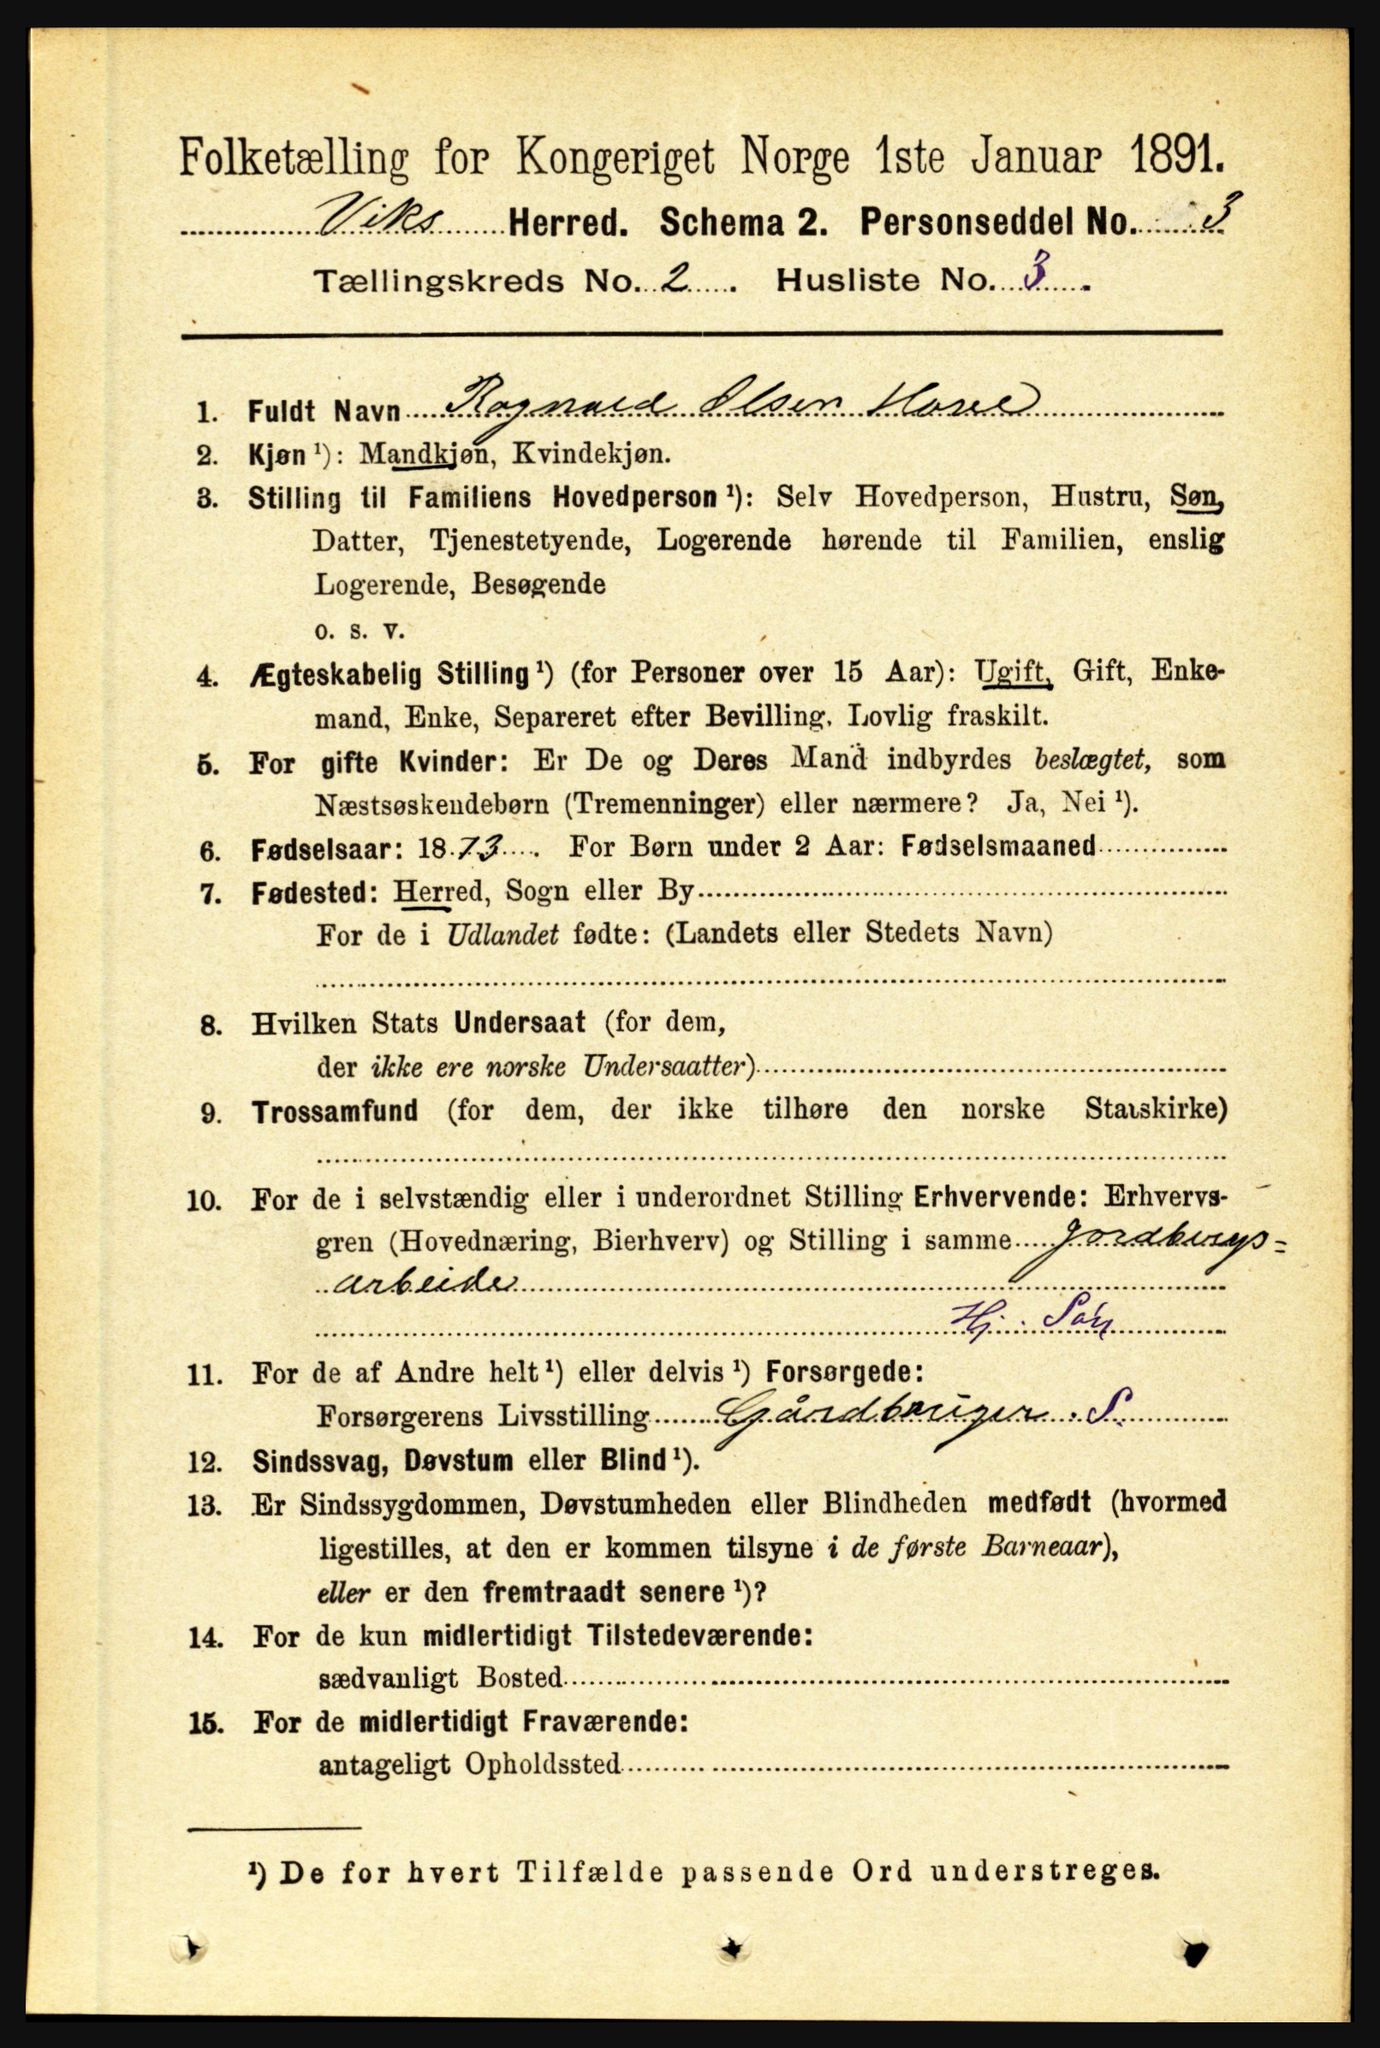 Folketælling for Kongeriget Norge 1ste Januar 1891.
Viks Herred. Schema 2. Personseddel No. 3
Tællingskreds No. 2. Husliste No. 3.
1. Fuldt Navn Ragnald Olsen Hove
2. Kjøn ¹): Mandkjøn, Kvindekjøn.
3. Stilling til Familiens Hovedperson ¹): Selv Hovedperson, Hustru, Søn,
Datter, Tjenestetyende, Logerende hørende til Familien, enslig
Logerende, Besøgende
o. s. v.
4. Ægteskabelig Stilling ¹) (for Personer over 15 Aar): Ugift, Gift, Enke-
mand, Enke, Separeret efter Bevilling. Lovlig fraskilt.
5. For gifte Kvinder: Er De og Deres Mand indbyrdes beslægtet, som
Næstsøskendebørn (Tremenninger) eller nærmere? Ja, Nei ¹).
6. Fødselsaar: 1873. For Børn under 2 Aar: Fødselsmaaned
7. Fødested: Herred, Sogn eller By
For de i Udlandet fødte: (Landets eller Stedets Navn)
8. Hvilken Stats Undersaat (for dem,
der ikke ere norske Undersaatter)
9. Trossamfund (for dem, der ikke tilhøre den norske Statskirke)
10. For de i selvstændig eller i underordnet Stilling Erhvervende: Erhvervs-
gren (Hovednæring, Bierhverv) og Stilling i samme Jordbrugs=
arbeide
Hj. Søn
11. For de af Andre helt ¹) eller delvis ¹) Forsørgede:
Forsørgerens Livsstilling Gårdbruger. S.
12. Sindssvag, Døvstum eller Blind ¹).
13. Er Sindssygdommen, Døvstumheden eller Blindheden medfødt (hvormed
ligestilles, at den er kommen tilsyne i de første Barneaar),
eller er den fremtraadt senere ¹)?
14. For de kun midlertidigt Tilstedeværende:
sædvanligt Bosted
15. For de midlertidigt Fraværende:
antageligt Opholdssted
¹) De for hvert Tilfælde passende Ord understreges.